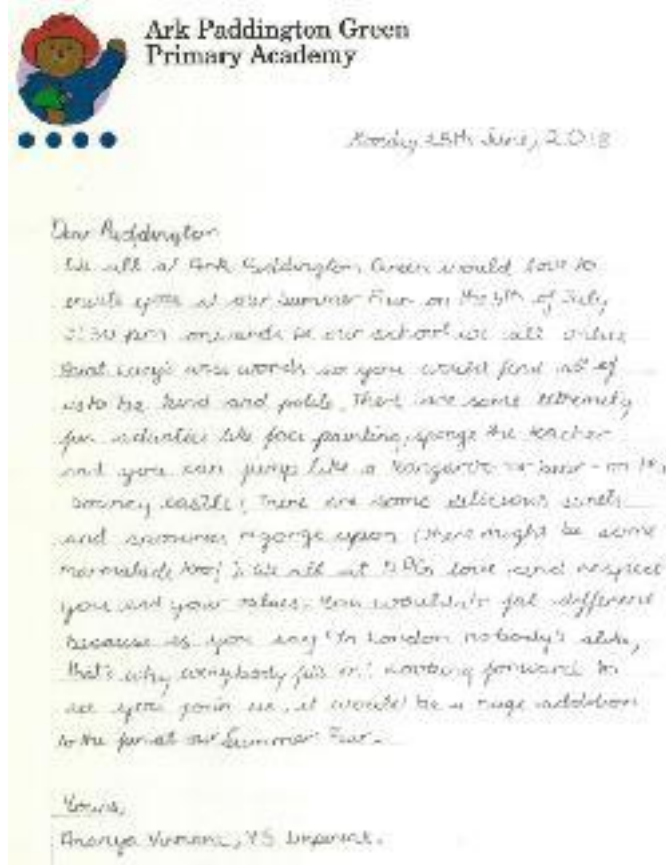 Ark Paddington Green
Primary Academy
Monday 25th June, 2018
Dear Paddington
We all at Ark Paddington Green would love to
invite you at our Summer Fair on the 5th of July
3:30 pm onwards in our school. We all
Aunt Lucy's wise words so you would find all of
us to be kind and polite. There are some extremely
fun activities like face painting, sponge the teacher
and you can jump like a kangaroo or bear - on the
bouncy castle! There are some delicious
and savouries to gorge upon (there might be some
marmalade too!). We all at love and respect
you and your values. You wouldn't feel different
because as you say "In London nobody's alike,
that's why everybody fits in! Looking forward to
see you join us, it would be a huge addition
to the fun at our Summer Fair.
Yours,
Ananya